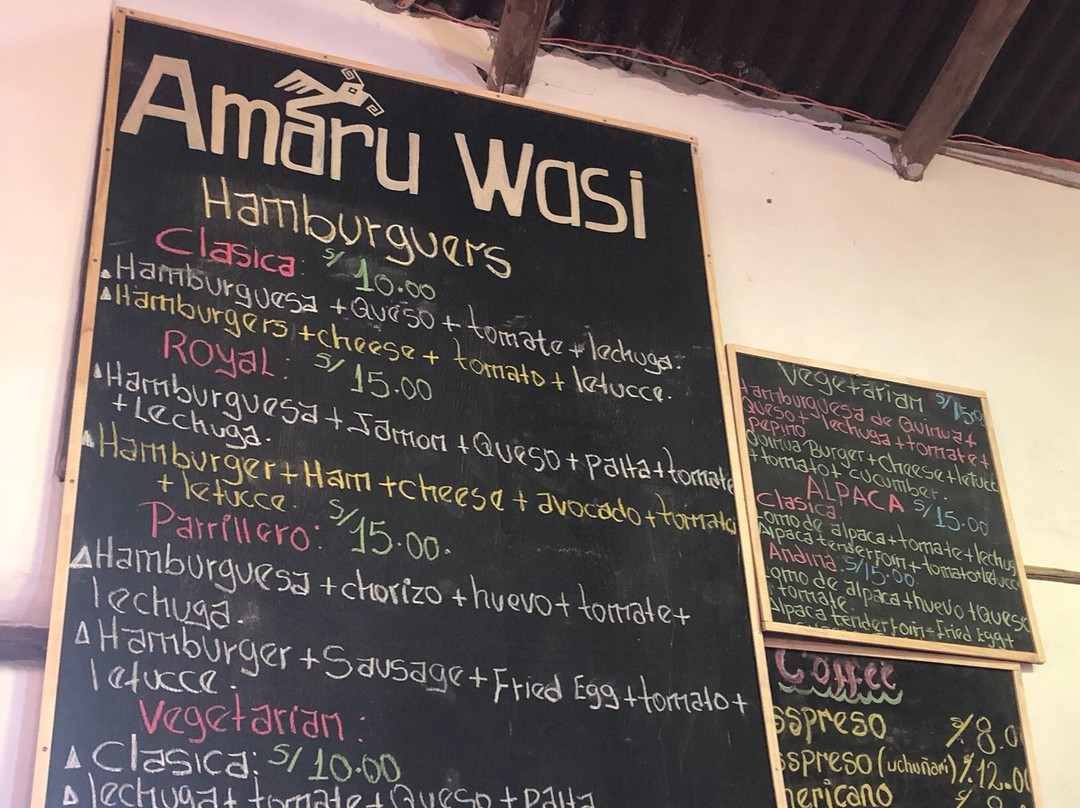 Amaru Wasi
Hamburguers
Clasica: S/ 10.00
Hamburguesa + Queso + tomate + lechuga.
Hamburgers + cheese + tomato + letucce.
Royal: S/ 15.00
Hamburguesa + Jamon + Queso + palta + tomate
+ Lechuga.
Hamburger + Ham + cheese + avocado + tomato
+ letucce.
Parrillero: S/ 15.00.
Hamburguesa + chorizo + huevo + tomate +
lechuga.
Hamburger + Sausage + Fried Egg + tomato +
letucce.
Vegetarian:
Clasica: S/ 10.00
lechuga + tomate + Queso + palta
Vegetarian S/15.0
Hamburguesa de Quinua +
Queso + lechuga + tomate +
pepino
Quinua Burger + cheese + letucc
+ tomato + cucumber.
ALPACA S/ 15.00
Clasica
Lomo de alpaca + tomate + lechug
Alpaca tenderloin + tomato + letucc
Andina: S/15.00.
Lomo de alpaca + huevo + Queso
+ tomate.
Alpaca tenderloin + Fried Egg +
Coffee
sspreso S/ 8.0
sspreso (uchuñari) S/ 12.00
mericano S/